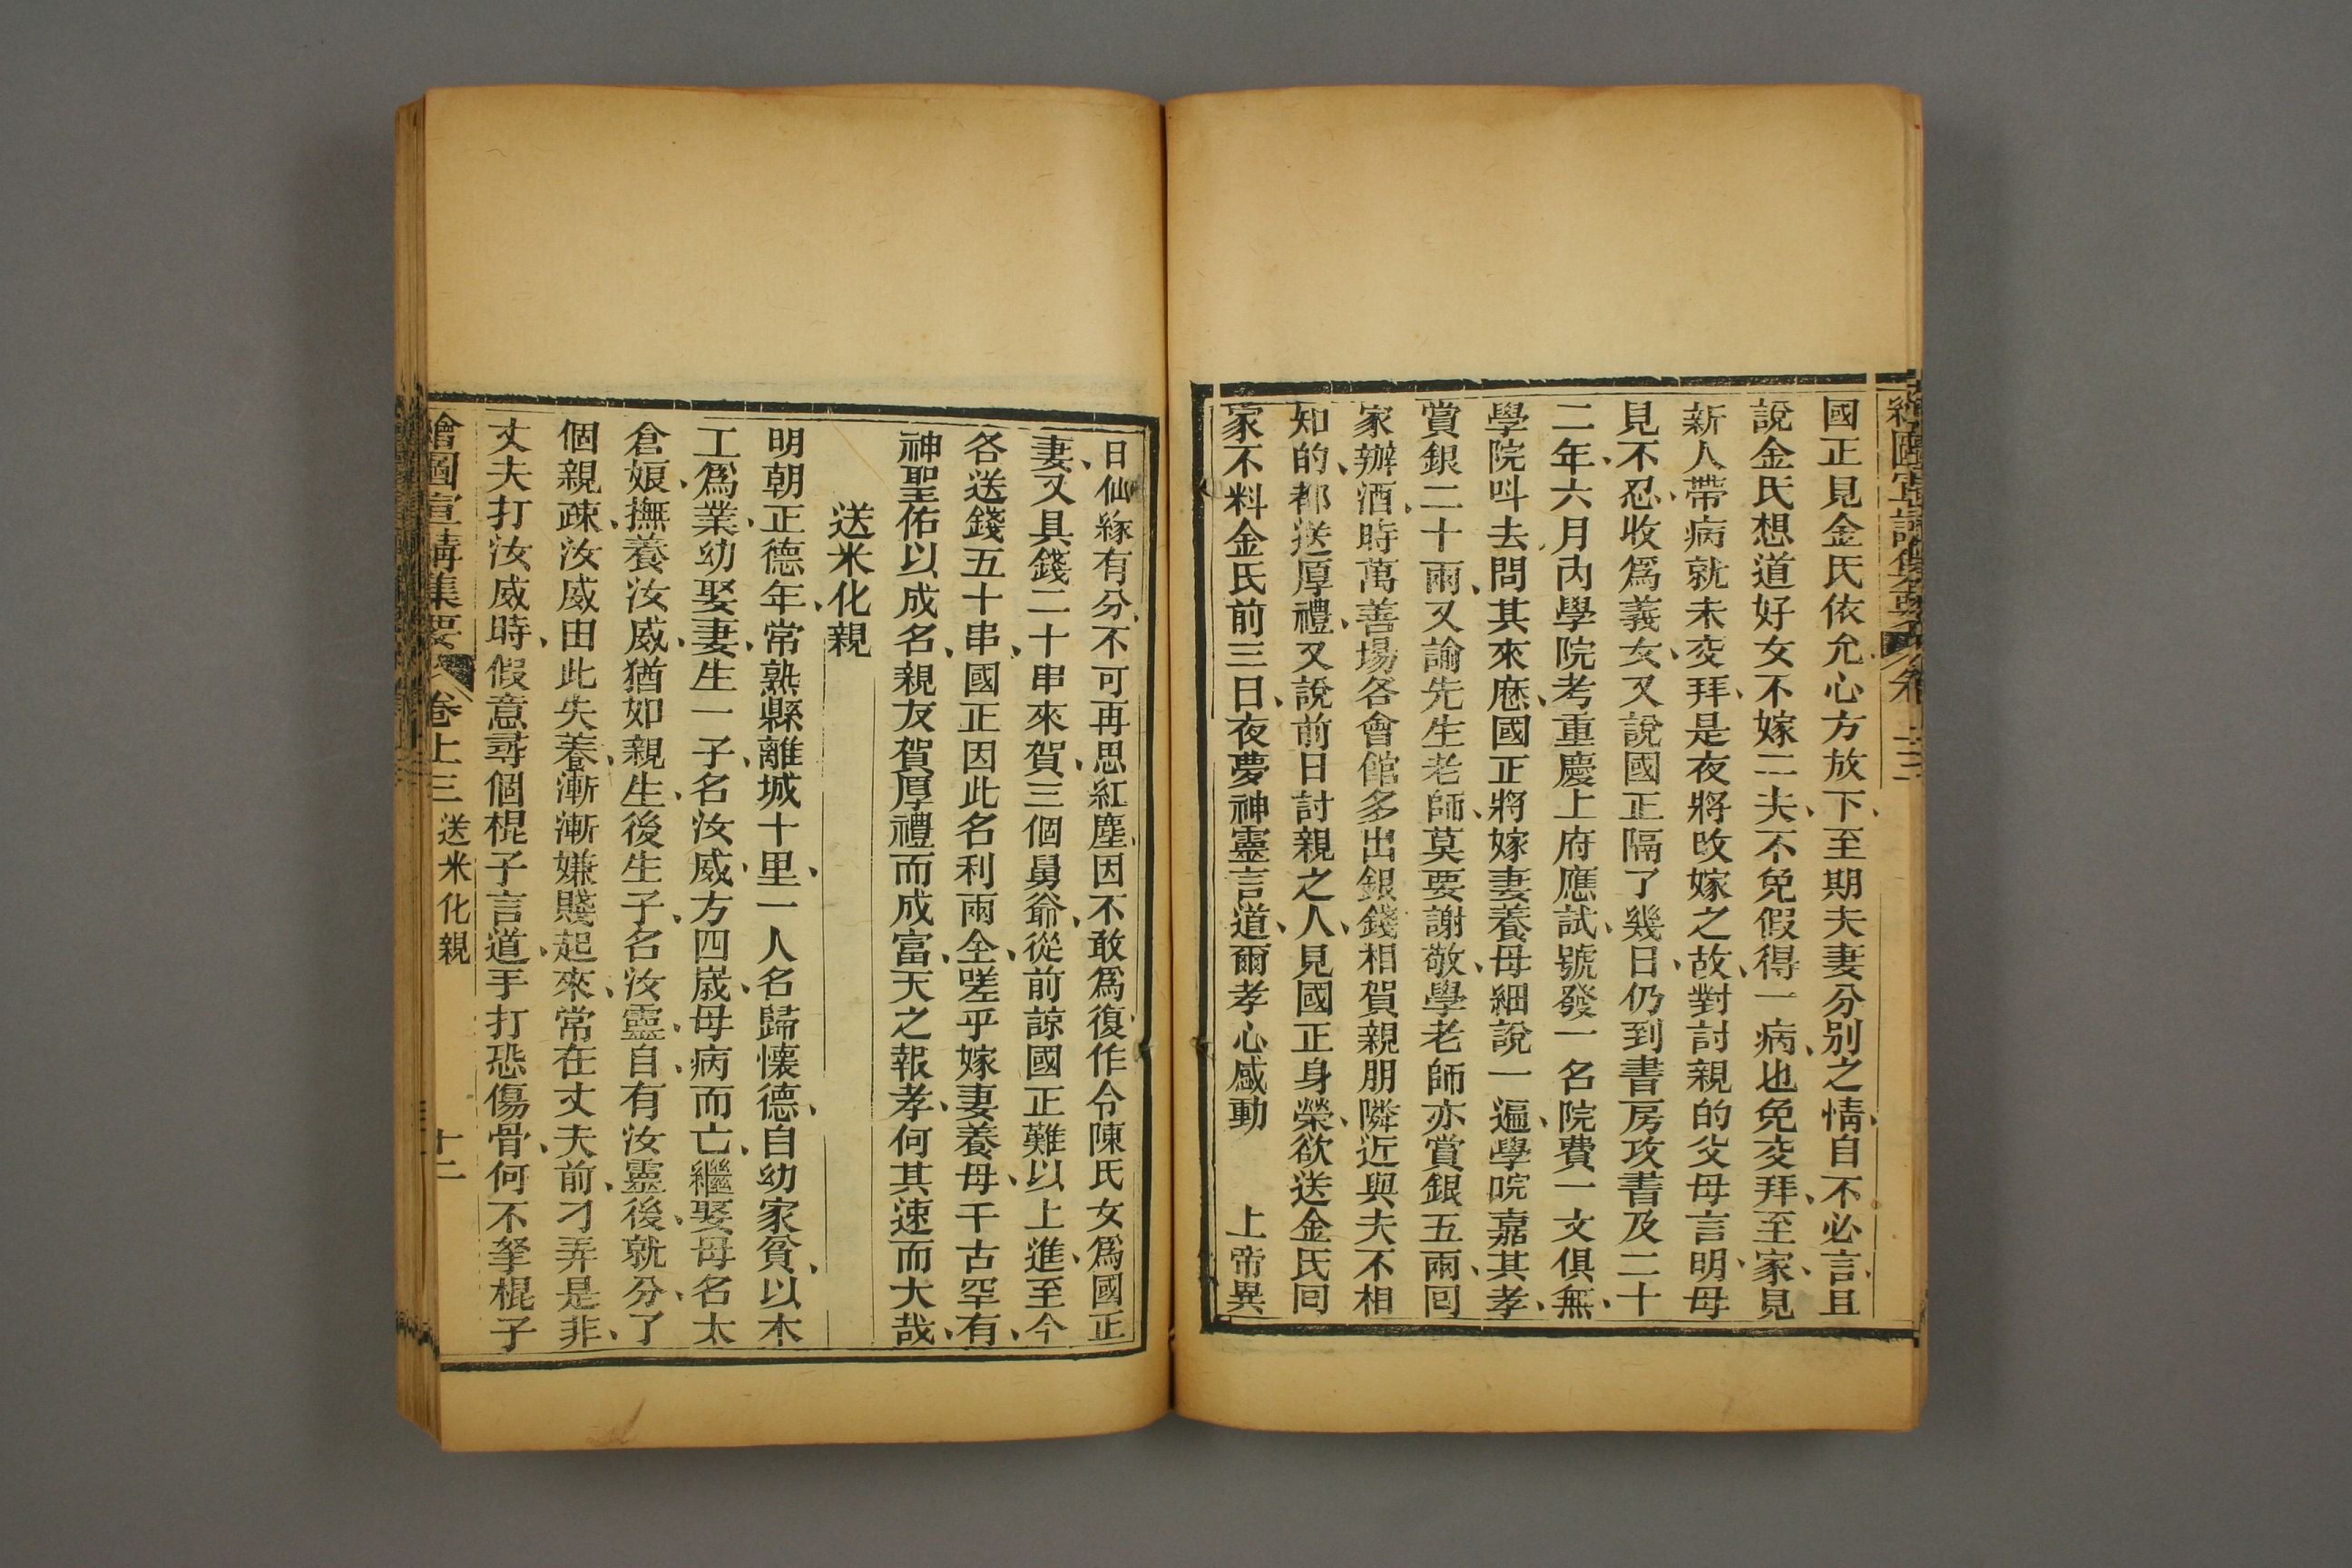 國正見金氏依允、心方放下、至期夫妻分别之情、自不必言、且
說金氏想道好女不嫁二夫、不免假得一病、也免交拜、至家、見
新人帶病就未交拜、是夜將改嫁之故、對討親的父母言明、母
見不忍、收爲義女、又說國正隔了幾日、仍到書房攻書、及二十
二年、六月內學院考重慶上府應試、號發一名院費一文俱無、
學院叫去問其來歷、國正將嫁妻養母細說一遍、學院嘉其孝、
賞銀二十兩、又諭先生老師、莫要謝敬、學老師亦賞銀五兩、囘
家辦酒、時萬善場各會館多出銀錢相賀親朋隣近與夫不相
知的、都送厚禮、又說前日討親之人、見國正身榮、欲送金氏囘
家不料金氏前三日、夜夢神靈言道、爾孝心感動 上帝異
日仙緣有分、不可再思紅塵、因不敢爲復作、令陳氏女爲國正
妻、又具錢二十串來賀、三個舅爺、從前諒國正難以上進、至今
各送錢五十串、國正因此名利兩全、嗟乎嫁妻養母、千古罕有、
神聖佑以成名、親友賀厚禮而成富、天之報孝、何其速而大哉、
送米化親
明朝正德年、常熟縣離城十里、一人名歸懷德、自幼家貧、以木
工爲業、幼娶妻、生一子、名汝威、方四歲、母病而亡、繼娶母名太
倉娘、撫養汝威、猶如親生、後生子、名汝靈、自有汝靈後、就分了
個親疎、汝威由此失養、漸漸嫌賤起來、常在丈夫前、刁弄是非、
丈夫打汝威時、假意尋個棍子言道、手打恐傷骨、何不拏棍子
繪圖宣講集要 卷上三 送米化親 十二